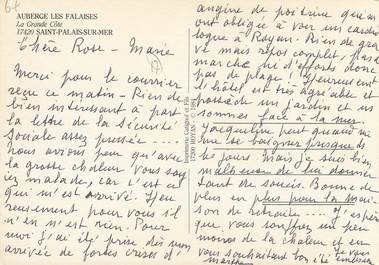 AUBERGE LES FALAISES
La Grande Côte
17420 SAINT-PALAIS-SUR-MER
Chère Rose-Marie
Merci pour le courrier
reçu ce matin - Rien de
bien intéressant à part
la lettre de la Sécurité
Sociale assez pressée ...
nous avions peur qu'avec
la grosse chaleur vous soy
iez malade, car c'est ce
qui m'est arrivé. Heu
reusement pour vous il
n'en n'est rien. Pour
moi j'ai été prise dès mon
arrivée de fortes crises d'
angine de poitrine qui m'
ont obligée à voir un cardio
logue à Royan. Rien de gra
ve mais repos complet, pas de
marche ni d'efforts donc
pas de plage ! Heureusement
l'hôtel est très agréable et
possède un jardin et ns
sommes face à la mer.
Jacqueline peut quand mê
me se baigner presque ts
les jours. Mais je suis bien
malheureuse de lui donner
tant de soucis. Bonne de
plus en plus pour la mai
son de retraite ... J'espère
que vous souffrez un peu
moins de la chaleur et en
vous souhaitant bon
Marthe
Imprimerie Gatignol et Fils
17200 ROYAN